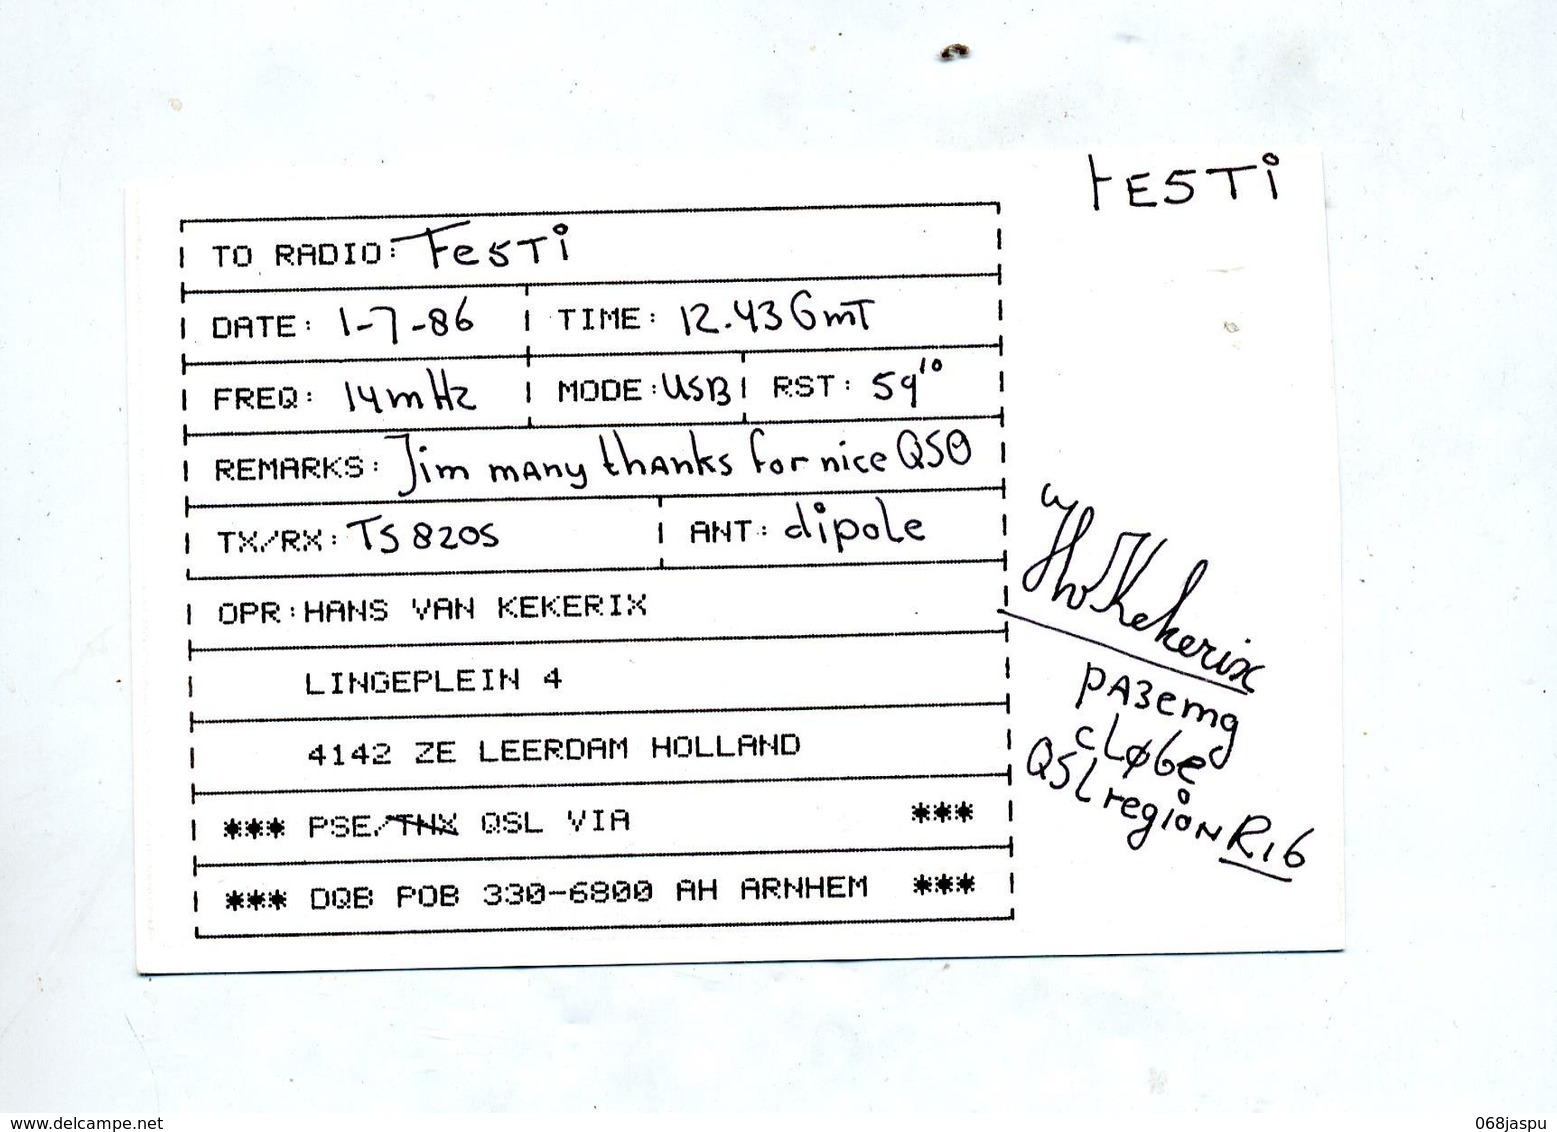 FE5Ti
TO RADIO: Fe5Ti
DATE: 1-7-86 TIME: 12.43 GmT
FREQ: 14 mHz MODE: USB RST: 59 10
REMARKS: Jim many thanks for nice QSO
TX/RX: TS 820S ANT: dipole
OPR: HANS VAN KEKERIX
LINGEPLEIN 4
4142 ZE LEERDAM HOLLAND
*** PSE/TNX QSL VIA ***
*** DQB POB 330-6800 AH ARNHEM ***
Kekerix
PA3emg
cLØbe
QSL region R16
www.delcampe.net
068jaspu